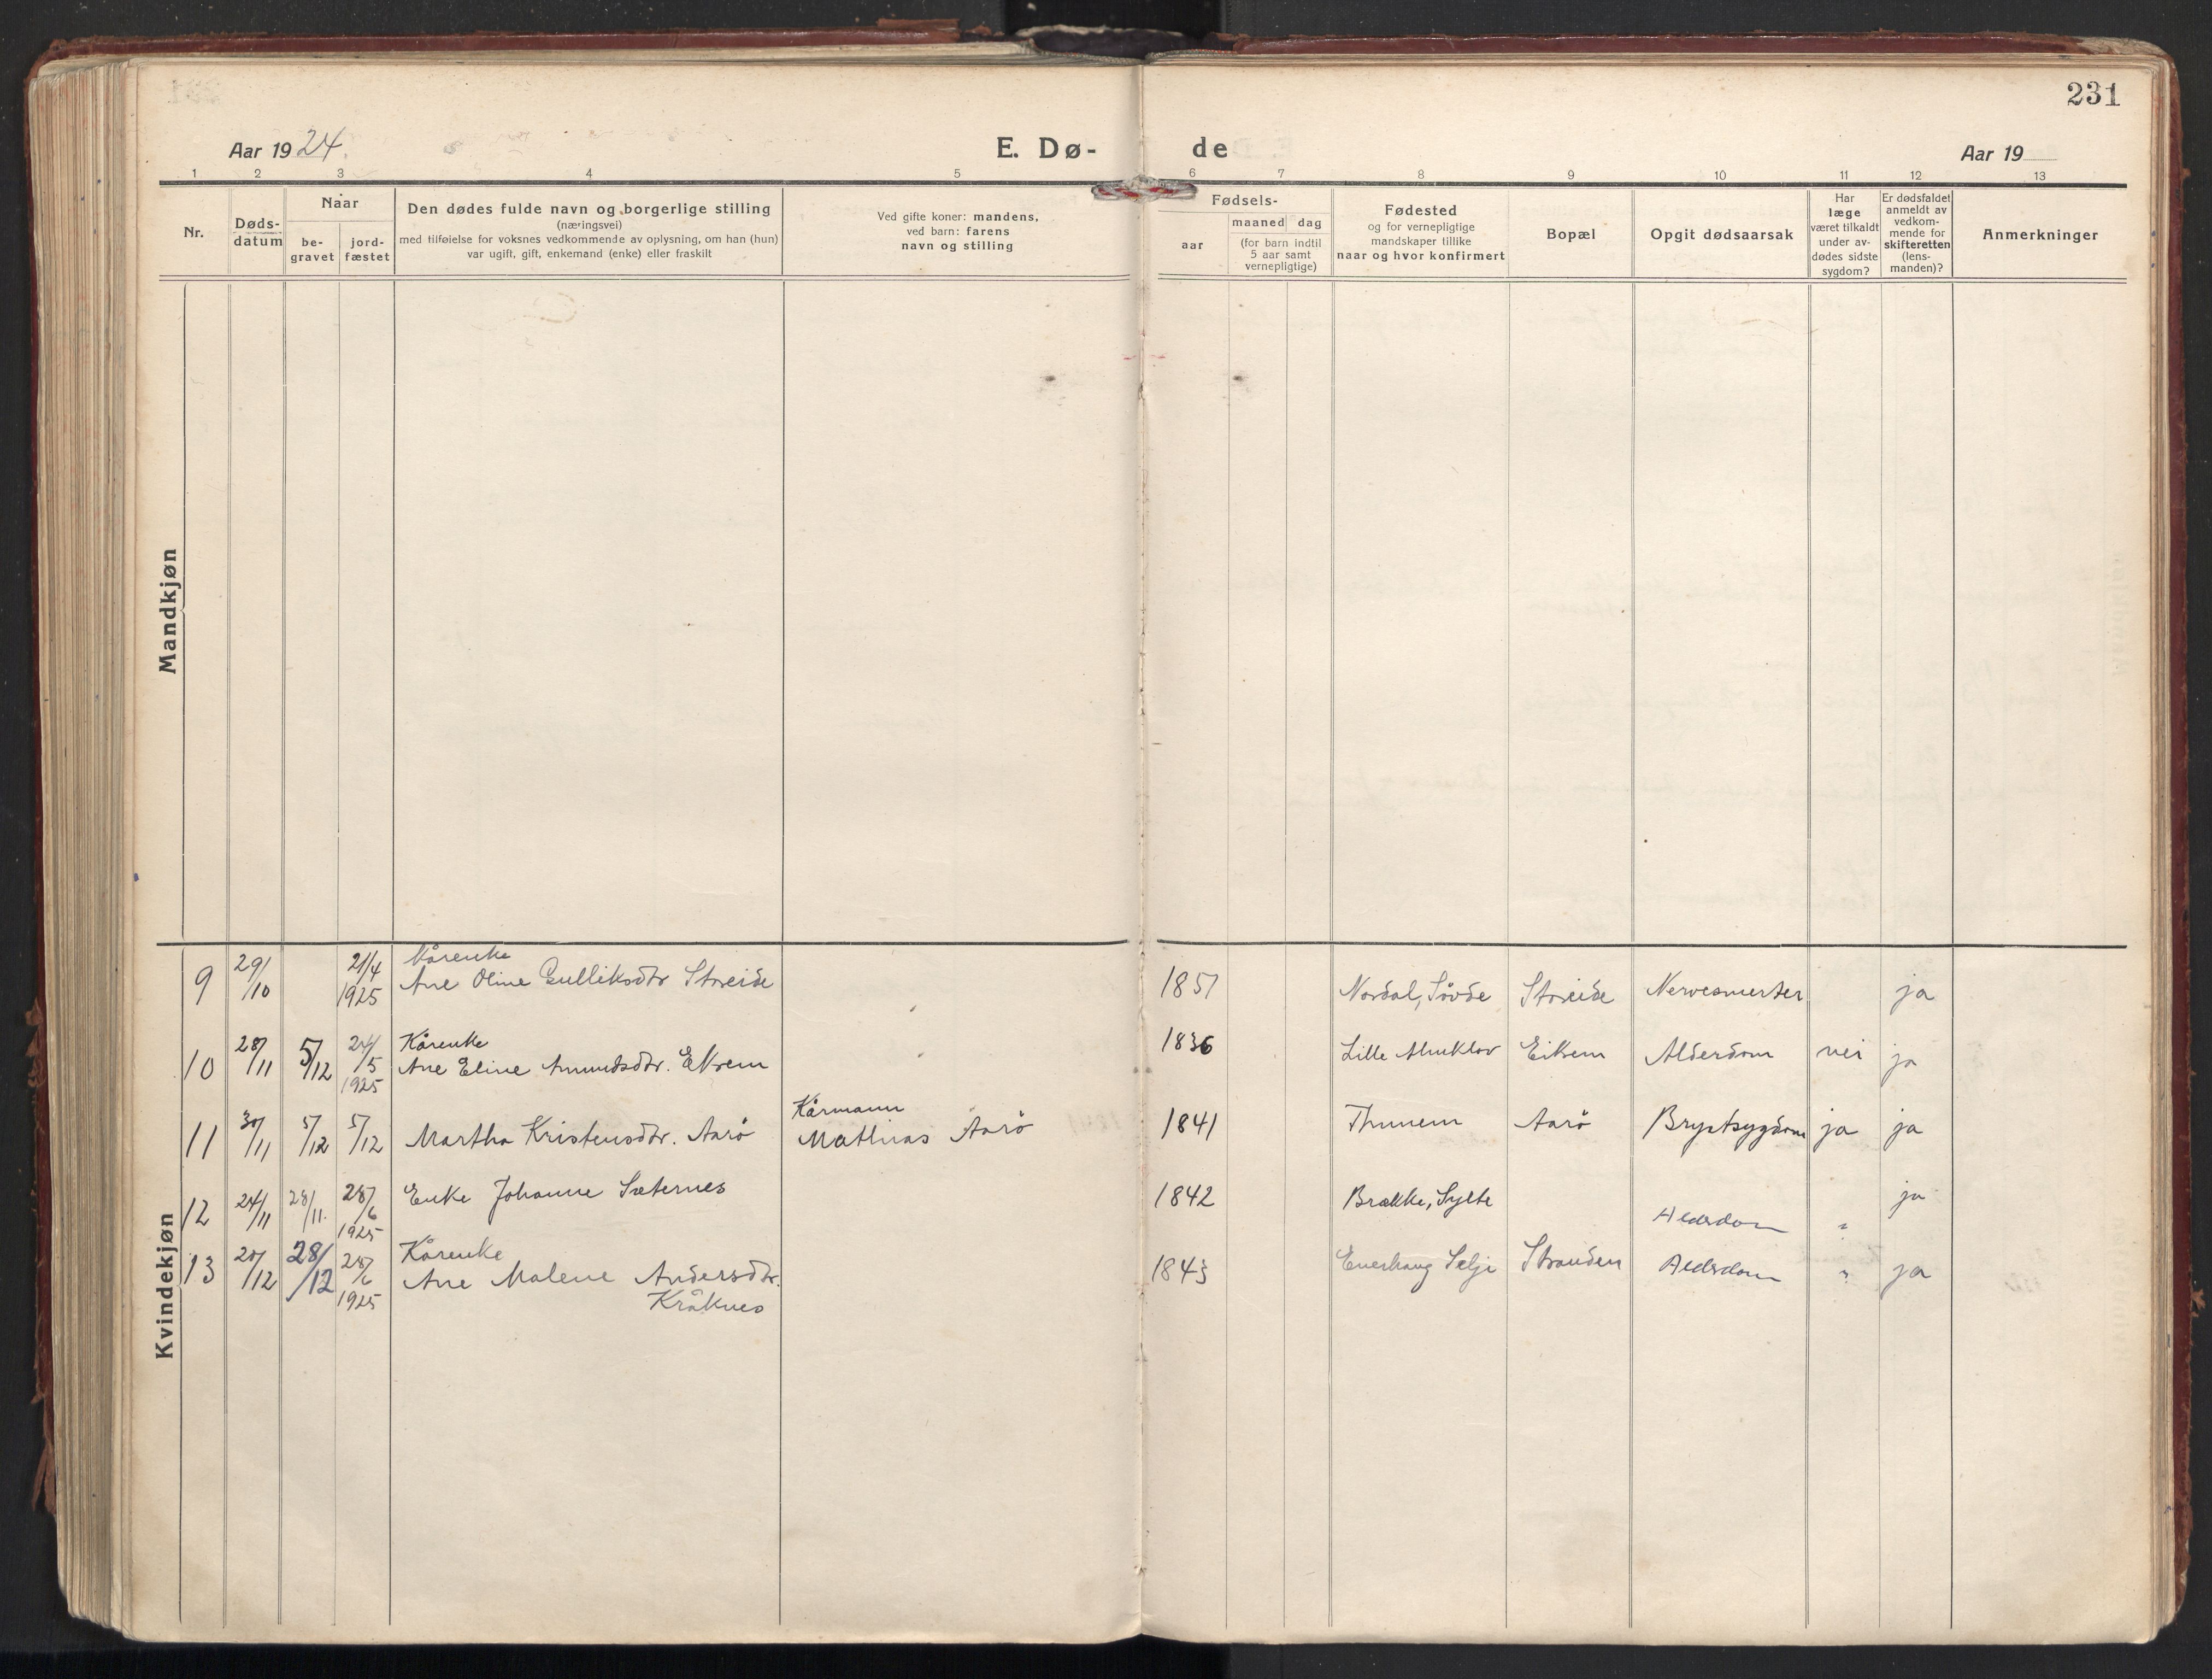 231
Aar 1924.
E. Dø-
de
Aar 19
1 2 3 4 5 6 7 8 9 10 11 12 13
Nr.
Døds-
datum
Naar
be-
gravet
jord-
fæstet
Den dødes fulde navn og borgerlige stilling
(næringsvei)
med tilføielse for voksnes vedkommende av oplysning, om han (hun)
var ugift, gift, enkemand (enke) eller fraskilt
Ved gifte koner: mandens,
ved barn: farens
navn og stilling
Fødsels-
aar
maaned dag
(for barn indtil
5 aar samt
vernepligtige)
Fødested
og for vernepligtige
mandskaper tillike
naar og hvor konfirmert
Bopæl
Opgit dødsaarsak
Har
læge
været tilkaldt
under av-
dødes sidste
sygdom?
Er dødsfaldet
anmeldt av
vedkom-
mende for
skifteretten
(lens-
manden)?
Anmerkninger
Mandkjøn
Kvindekjøn
9 29/10 21/4 1925
Kårenke
Ane Oline Gulliksdtr Storeide
1851 Nordal, Sövde Storeide Nervesmerter ja
10 28/11 5/12 24/5 1925
Kårenke
Ane Eline Amundsdtr. Ekrem
1836 Lille Eikrem Alderdom nei ja
11 30/11 5/12 5/12
Martha Kristensdtr. Aarö
Kårmann
Mathias Aarö
1841 Aarö Brystsygdom ja ja
12 24/11 28/11. 28/6 1925
Enke Johanne Sæternes
1842 Brække, Sylte Aldsdom " ja
13 20/12 28/12 28/6 1925
Kårenke
Ane Malene Andersdtr.
Kråknes
1843 Enerhaug Selje Stranden Aldsdom " ja